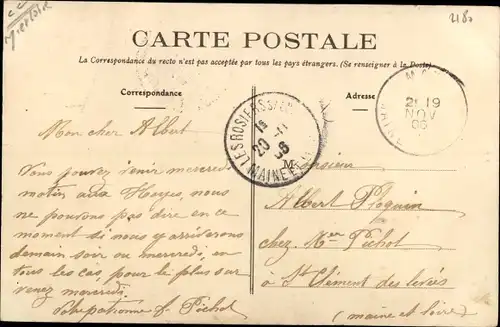 CARTE POSTALE
La Correspondance du recto n'est pas acceptée par tous les pays étrangers. (Se renseigner à la Poste)
Correspondance
Adresse
Mon cher Albert
Vous pouvez venir mercredi
matin aux nous
ne pouvons pas dire en ce
moment si nous y arriverons
demain soir ou mercredi, en
tous les cas, pour le plus sur
venez mercredi.
f. Pichot
LES ROSIERS
20 - 11
06
MAINE ET
19
NOV
06
Monsieur
Albert Ploquin
chez Mme Pichot
à St Clément des levées
(maine et loire)